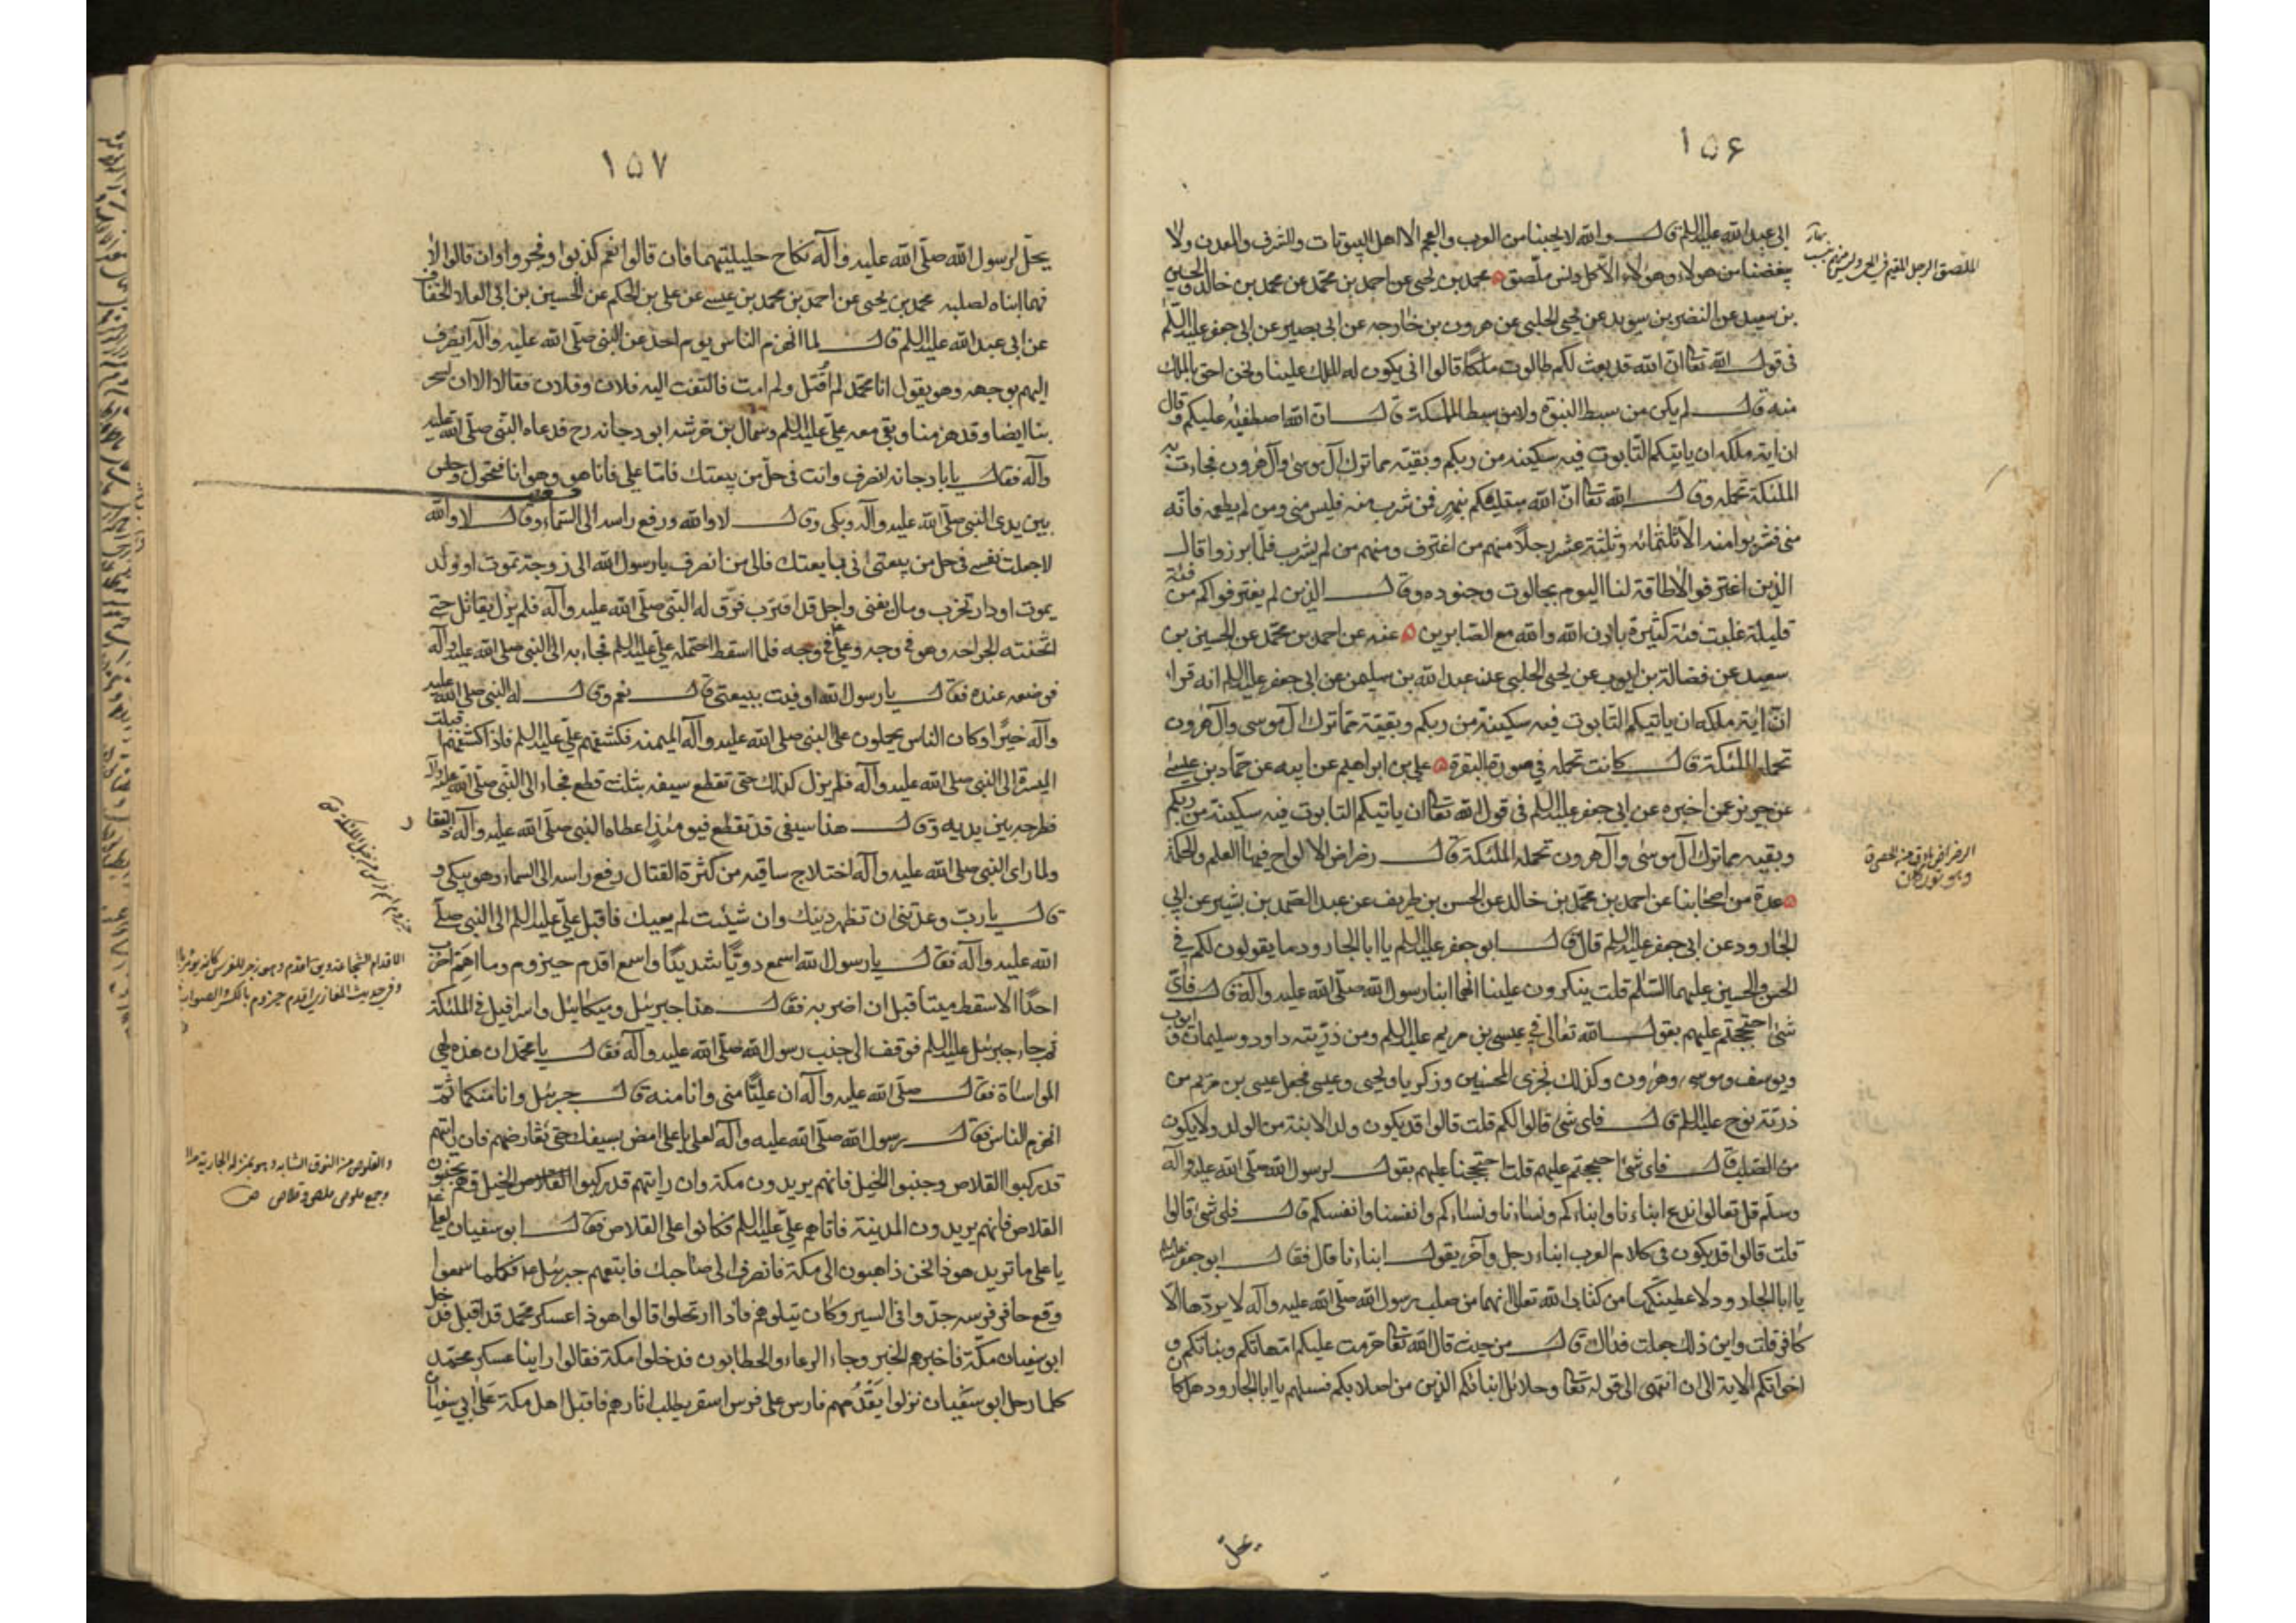 ١٥۶
ابى عبد الله عليه السلم قال والله لا يحبنا من العرب والعجم الا اهل البيوتات والشرف والمعدن ولا
يبغضنا من هؤلاء وهؤلاء الا كل دنس ملصق محمد بن يحيى عن احمد بن محمد عن محمد بن خالد والحسين
بن سعيد عن النضر بن سويد عن يحيى الحلبى عن هرون بن خارجه عن ابى بصير عن ابى جعفر عليه السلم
فى قول الله تعا ان الله قد بعث لكم طالوت ملكا قالوا انى يكون له الملك علينا ونحن احق بالملك
منه قال لم يكن من سبط النبوة ولا من سبط المملكة قال ان الله اصطفيه عليكم وقال
ان اية ملكه ان ياتيكم التابوت فيه سكينه من ربكم وبقيته مما ترك آل موسى وآل هرون فجاءت به
الملئكة تحمله وقال الله تعا ان الله مبتليكم بنهر فمن شرب منه فليس منى ومن لم يطعمه فانه
منى فشربوا منه الا ثلثمائه وثلثة عشر رجلا منهم من اغترف ومنهم من لم يشرب فلما برزوا قال
الذين اغترفوا لا طاقة لنا اليوم بجالوت وجنوده وقال الذين لم يغترفوا كم من فئة
قليلة غلبت فئة كثيرة باذن الله والله مع الصابرين عنه عن احمد بن محمد عن الحسين بن
سعيد عن فضالة بن ايوب عن يحيى الحلبى عن عبد الله بن سليمن عن ابى جعفر عليه السلم انه قراء
ان اية ملكه ان ياتيكم التابوت فيه سكينة من ربكم وبقيتة مما ترك آل موسى وآل هرون
تحمله الملئكة قال كانت تحمله فى صورة البقرة على بن ابراهيم عن ابيه عن حماد بن عيسى
عن حريز عمن اخبره عن ابى جعفر عليه السلم فى قول الله تعا ان ياتيكم التابوت فيه سكينة من ربكم
وبقيه مما ترك آل موسى وآل هرون تحمله الملئكة قال رضراض الالواح فيها العلم والحكمة
عدة من اصحابنا عن احمد بن محمد بن خالد عن الحسن بن ظريف عن عبد الصمد بن بشير عن ابى
الجارود عن ابى جعفر عليه السلم قال قال ابو جعفر عليه السلم يا ابا الجارود ما يقولون لكم فى
الحسن والحسين عليهما السلم قلت ينكرون علينا انهما ابنا رسول الله صلى الله عليه وآله قال فاى
شئ احتججتم عليهم بقول الله تعالى فى عيسى بن مريم عليه السلم ومن ذريته داود وسليمان وايوب
ويوسف وموسى وهرون وكذلك نجزى المحسنين وزكريا ويحيى وعيسى فجعل عيسى بن مريم من
ذرية نوح عليه السلم قال فاى شئ قالوا لكم قلت قالوا قد يكون ولد الابنة من الولد ولا يكون
من الصلب قال فاى شئ احتججتم عليهم قلت احتججنا عليهم بقول لرسول الله صلى الله عليه وآله
وسلم قل تعالوا ندع ابناءنا وابناءكم ونساءنا ونساءكم وانفسنا وانفسكم قال فاى شئ قالوا
قلت قالوا قد يكون فى كلام العرب ابناء رجل وآخر يقول ابناءنا قال فقال ابو جعفر عليه السلم
يا ابا الجارود لاعطينكها من كتاب الله تعالى انهما من صلب رسول الله صلى الله عليه وآله لا يردها الا
كافر قلت واين ذلك جعلت فداك قال من حيث قال الله تعا حرمت عليكم امهاتكم وبناتكم و
اخواتكم الاية الى ان انتهى الى قوله تعا وحلائل ابنائكم الذين من اصلابكم فسلهم يا ابا الجارود هل كان
يحل
الملصق الرجل المقيم فى الحى وليس منهم بنسب
الرضراض ما دق من الحصى
١٥٧
يحل لرسول الله صلى الله عليه وآله نكاح حليلتيهما فان قالوا نعم كذبوا وفجروا وان قالوا لا
فهما ابناه لصلبه محمد بن يحيى عن احمد بن محمد بن عيسى عن على بن الحكم عن الحسين بن ابى العلا الخفاف
عن ابى عبد الله عليه السلم قال لما انهزم الناس يوم احد عن النبى صلى الله عليه وآله انصرف
اليهم بوجهه وهو يقول انا محمد لم اقتل ولم امت فالتفت اليه فلان وفلان فقالا الان يسخر
بنا ايضا وقد هزمنا وبقى معه على عليه السلم وسماك بن خرشه ابو دجانه رح فدعاه النبى صلى الله عليه
وآله فقال يابا دجانه انصرف وانت فى حل من بيعتك فاما على فانا هو وهو انا فتحول وجلس
بين يدى النبى صلى الله عليه وآله وبكى وقال لا والله ورفع راسه الى السماء وقال لا والله
لا جعلت نفسى فى حل من بيعتى انى بايعتك فالى من انصرف يا رسول الله الى زوجة تموت او ولد
يموت او دار تخرب ومال يفنى واجل قد اقترب فرق له النبى صلى الله عليه وآله فلم يزل يقاتل حتى
اثخنته الجراحه وهو فى وجه وعلى فى وجه فلما اسقط احتمله على عليه السلم فجاء به الى النبى صلى الله عليه وآله
فوضعه عنده فقال يا رسول الله اوفيت ببيعتى قال نعم وقال له النبى صلى الله عليه
وآله خيرا وكان الناس يحملون على النبى صلى الله عليه وآله الميمنه فكشفهم على عليه السلم فاذا كشفهم اقبلت
الميسرة الى النبى صلى الله عليه وآله فلم يزل كذلك حتى تقطع سيفه بثلث قطع فجاء الى النبى صلى الله عليه وآله
فطرحه بين يديه وقال هذا سيفى قد تقطع فيومئذ اعطاه النبى صلى الله عليه وآله ذا الفقار
ولما راى النبى صلى الله عليه وآله اختلاج ساقيه من كثرة القتال رفع راسه الى السماء وهو يبكى و
قال يا رب وعدتنى ان تظهر دينك وان شئت لم يعيك فاقبل على عليه السلم الى النبى صلى
الله عليه وآله فقال يا رسول الله اسمع دويا شديدا واسمع اقدم حيزوم وما اهم اضرب
احدا الا سقط ميتا قبل ان اضربه فقال هذا جبرئيل وميكائيل واسرافيل فى الملئكة
ثم جاء جبرئيل عليه السلم فوقف الى جنب رسول الله صلى الله عليه وآله فقال يا محمد ان هذه لهى
المواساة فقال صلى الله عليه وآله ان عليا منى وانا منه قال جبرئيل وانا منكما ثم
انهزم الناس فقال رسول الله صلى الله عليه وآله لعلى يا على امض بسيفك حتى تعارضهم فان رايتهم
قد ركبوا القلاص وجنبوا الخيل فانهم يريدون مكة وان رايتهم قد ركبوا الخيل وهم يجنبون
القلاص فانهم يريدون المدينة فاتاهم على عليه السلم فكانوا على القلاص فقال ابو سفيان لعلى
يا على ما تريد هو ذا نحن ذاهبون الى مكة فانصرف الى صاحبك فاتبعهم جبرئيل فكلما سمعوا
وقع حافر فرسه جدوا فى السير وكان يتلوهم فاذا ارتحلوا قالوا هو ذا عسكر محمد قد اقبل فدخل
ابو سفيان مكة فاخبرهم الخبر وجاء الرعاء والحطابون فدخلوا مكة فقالوا راينا عسكر محمد
كلما رحل ابو سفيان نزلوا يقدمهم فارس على فرس اشقر يطلب اثارهم فاقبل اهل مكة على ابى سفيان